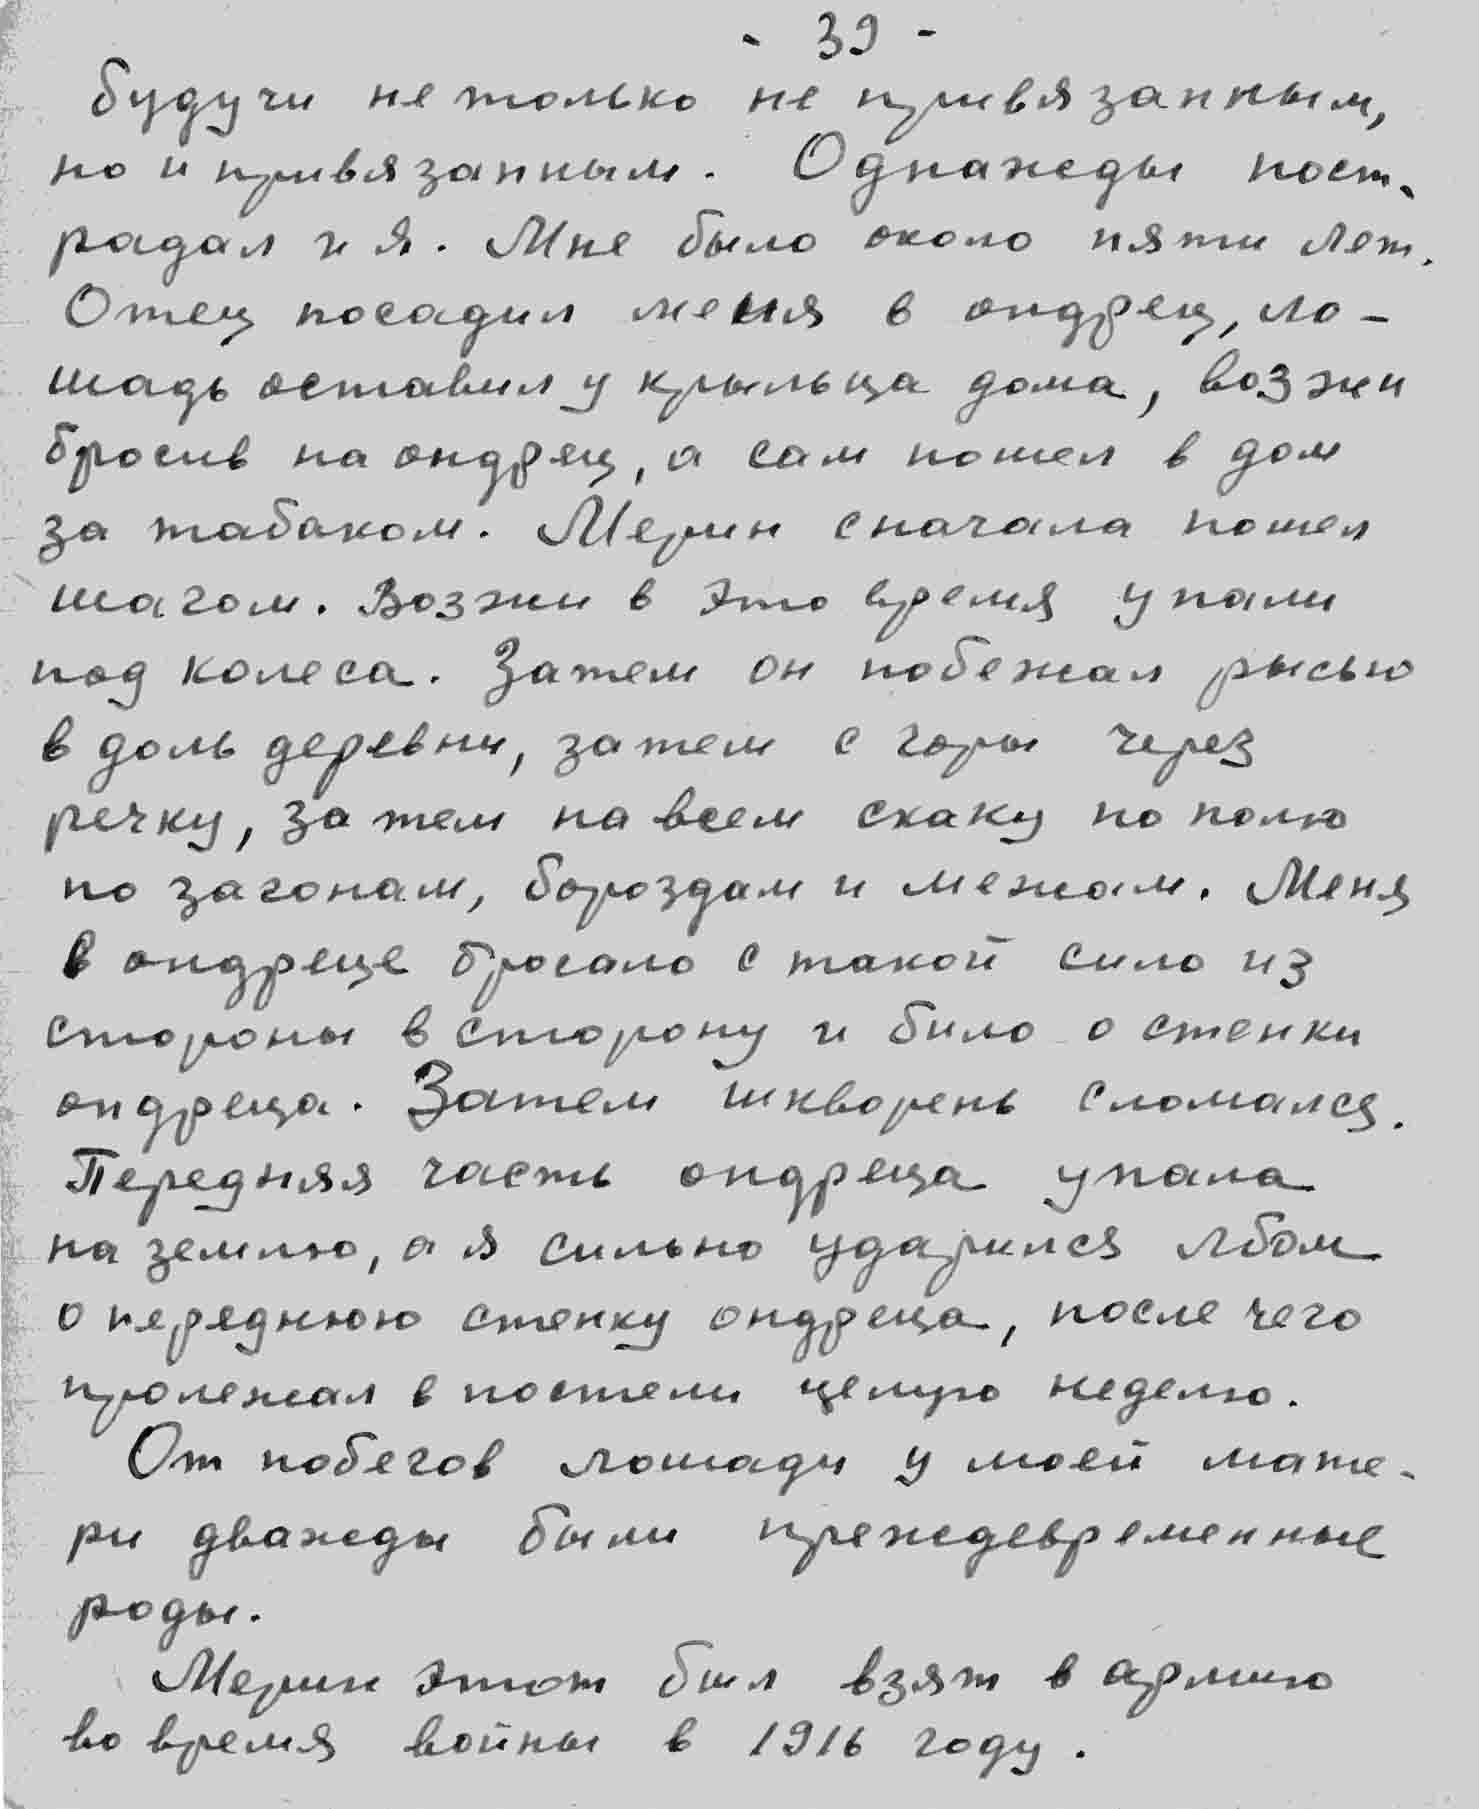 - 39 -
будучи не только не привязанным,
но и привязанным. Однажды пост-
радал и я. Мне было около пяти лет.
Отец посадил меня в ондрец, ло-
шадь оставил у крыльца дома, возжи
бросив на ондрец, а сам пошел в дом
за табаком. Мерин сначала пошел
шагом. Возжи в это время упали
под колеса. Затем он побежал рысью
в доль деревни, затем с горы через
речку, затем на всем скаку по полю
по загонам, бороздам и межам. Меня
в ондреце бросало с такой сило из
стороны в сторону и било о стенки
ондреца. Затем шкворень сломался.
Передняя часть ондреца упала
на землю, а я сильно ударился лбом
о переднюю стенку ондреца, после чего
пролежал в постели целую неделю.
От побегов лошади у моей мате-
ри дважды были преждевременные
роды.
Мерин этот был взят в армию
во время войны в 1916 году.